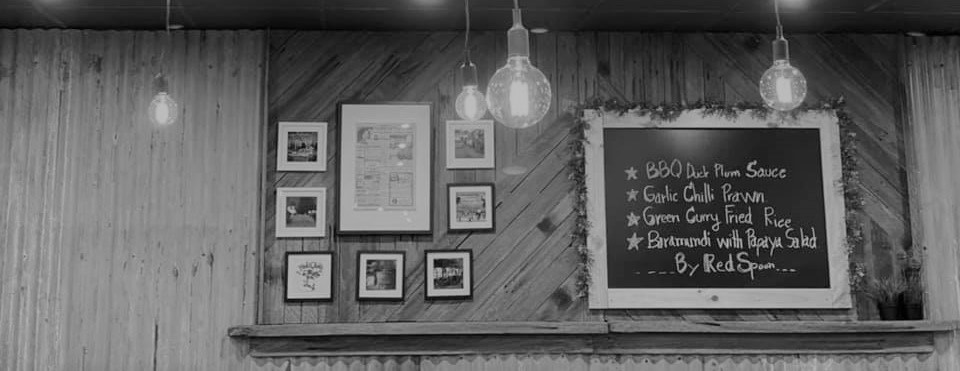 BBQ Duck Plum Sauce
Garlic Chilli Prawn
Green Curry Fried Rice
Baramundi with Papaya Salad
By Red Spoon